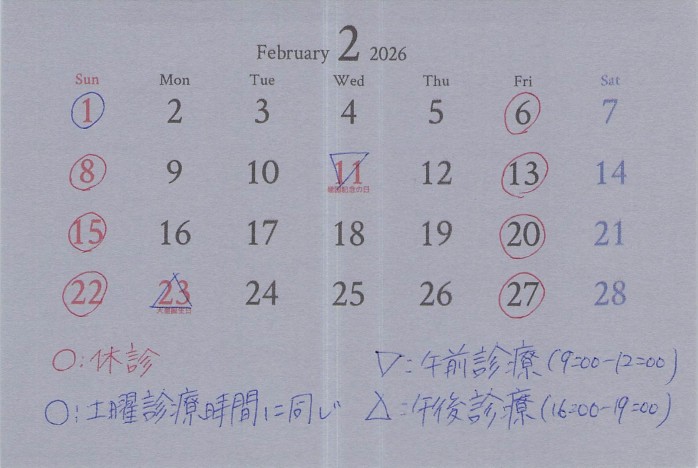 February 2 2026
Sun Mon Tue Wed Thu Fri Sat
1 2 3 4 5 6 7
8 9 10 11 12 13 14
建国記念の日
15 16 17 18 19 20 21
22 23 24 25 26 27 28
天皇誕生日
○:休診
▽:午前診療(9:00-12:00)
○:土曜診療時間に同じ
△:午後診療(16:00-19:00)